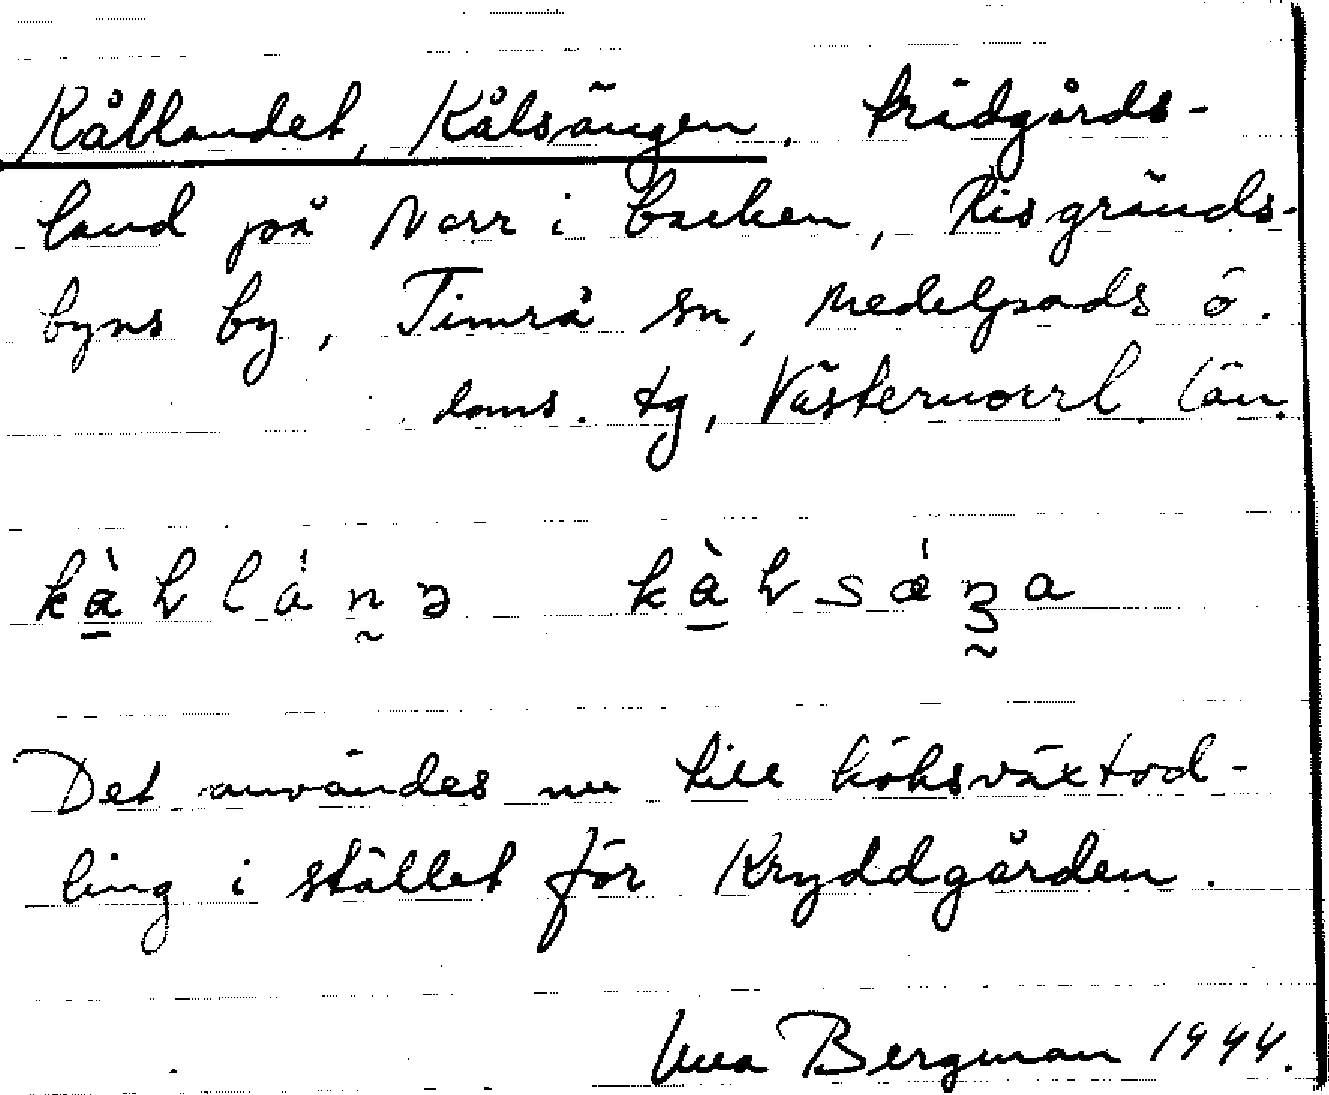 Kållandet, Kålsängen. trädgårds-
land på Norr i backen, Risgränds-
byns by, Timrå sn, Medelpads ö.
doms. tg, Västernorrl. län.
Det användes nu till köksväxtod-
ling i stället för Kryddgården.
Bergman 1944.